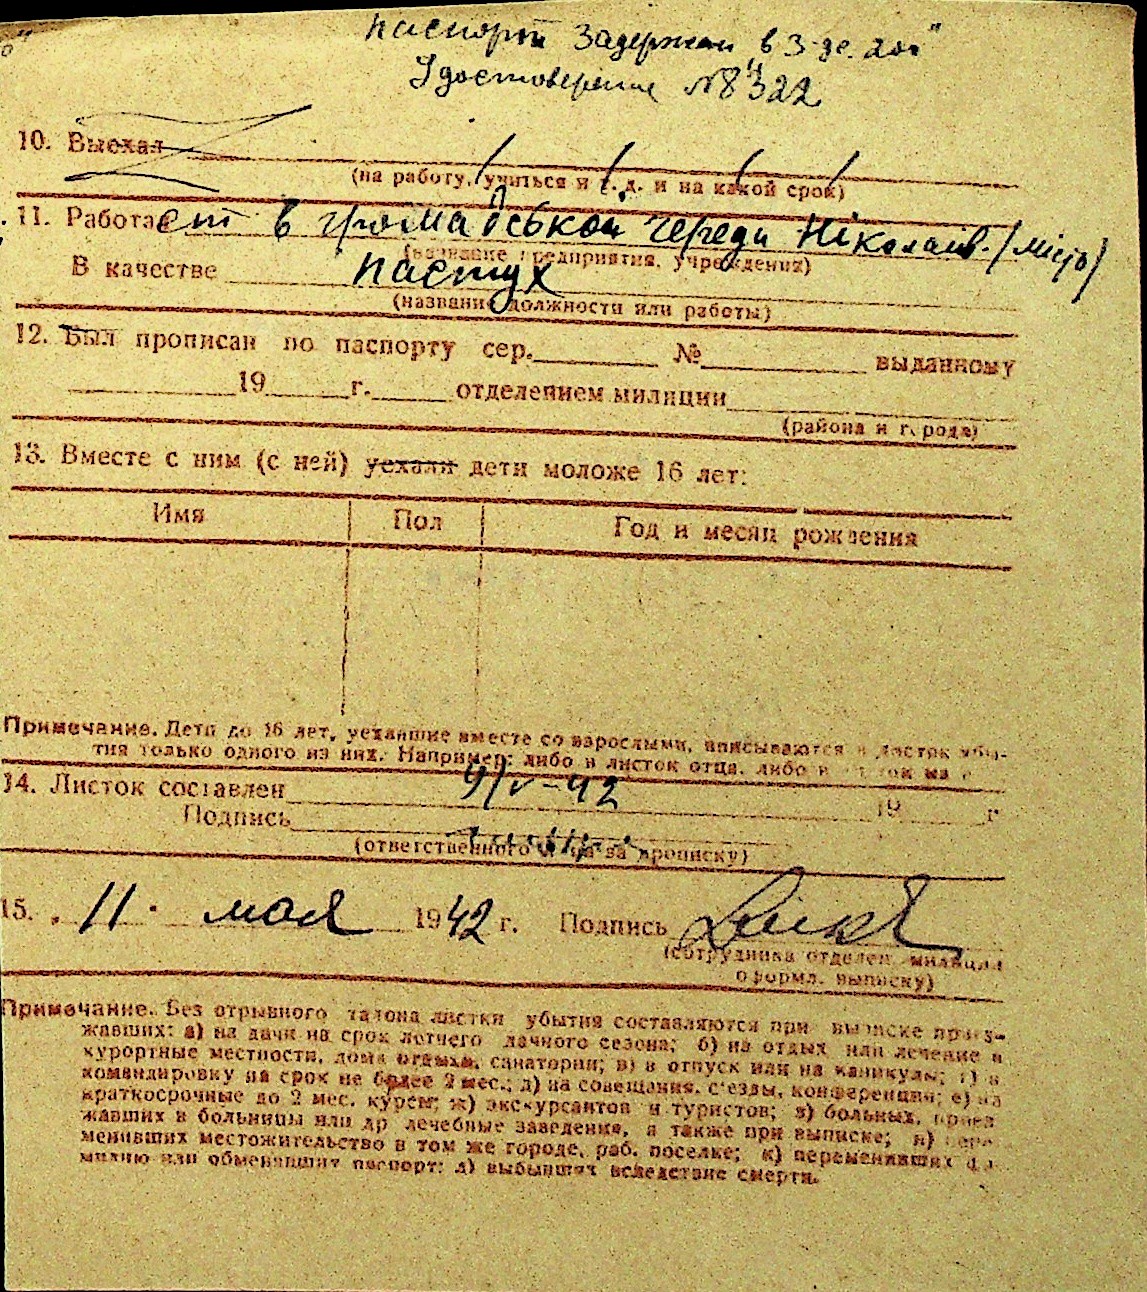 паспорт задержан в 3-
Удостоверение №8322
10. Выехал
(на работу, учиться и т. д. и на какой срок)
11. Работает в громадській череди Ніколаїв. (місто)
(название предприятия, учреждения)
В качестве пастух
(название должности или работы)
12. Был прописан по паспорту сер. № выданному
19 г. отделением милиции
(района и города)
13. Вместе с ним (с ней) уехали дети моложе 16 лет:
Имя Пол Год и месяц рождения
Примечание. Дети до 16 лет, уехавшие вместе со взрослыми, вписываются в листок убы-
тия только одного из них. Например: либо в листок отца, либо в
14. Листок составлен 9/V-42 19 г
Подпись
(ответственного лица за прописку)
15. „ 11 " мая 1942 г. Подпись
(сотрудника отделен. милиции
оформл. выписку)
Примечание. Без отрывного талона листки убытия составляются при выписке приез-
жавших: а) на дачи на срок летнего дачного сезона; б) на отдых или лечение в
курортные местности, дома отдыха, санатории; в) в отпуск или на каникулы; г) в
командировку на срок не более 2 мес.; д) на совещания, с'езды, конференции; е) на
краткосрочные до 2 мес. курсы; ж) экскурсантов и туристов; з) больных, приез
жавших в больницы или др лечебные заведения, а также при выписке; и) пере
менивших местожительство в том же городе, раб. поселке; к) переменивших фа
милию или обменявших паспорт; л) выбывших вследствие смерти.